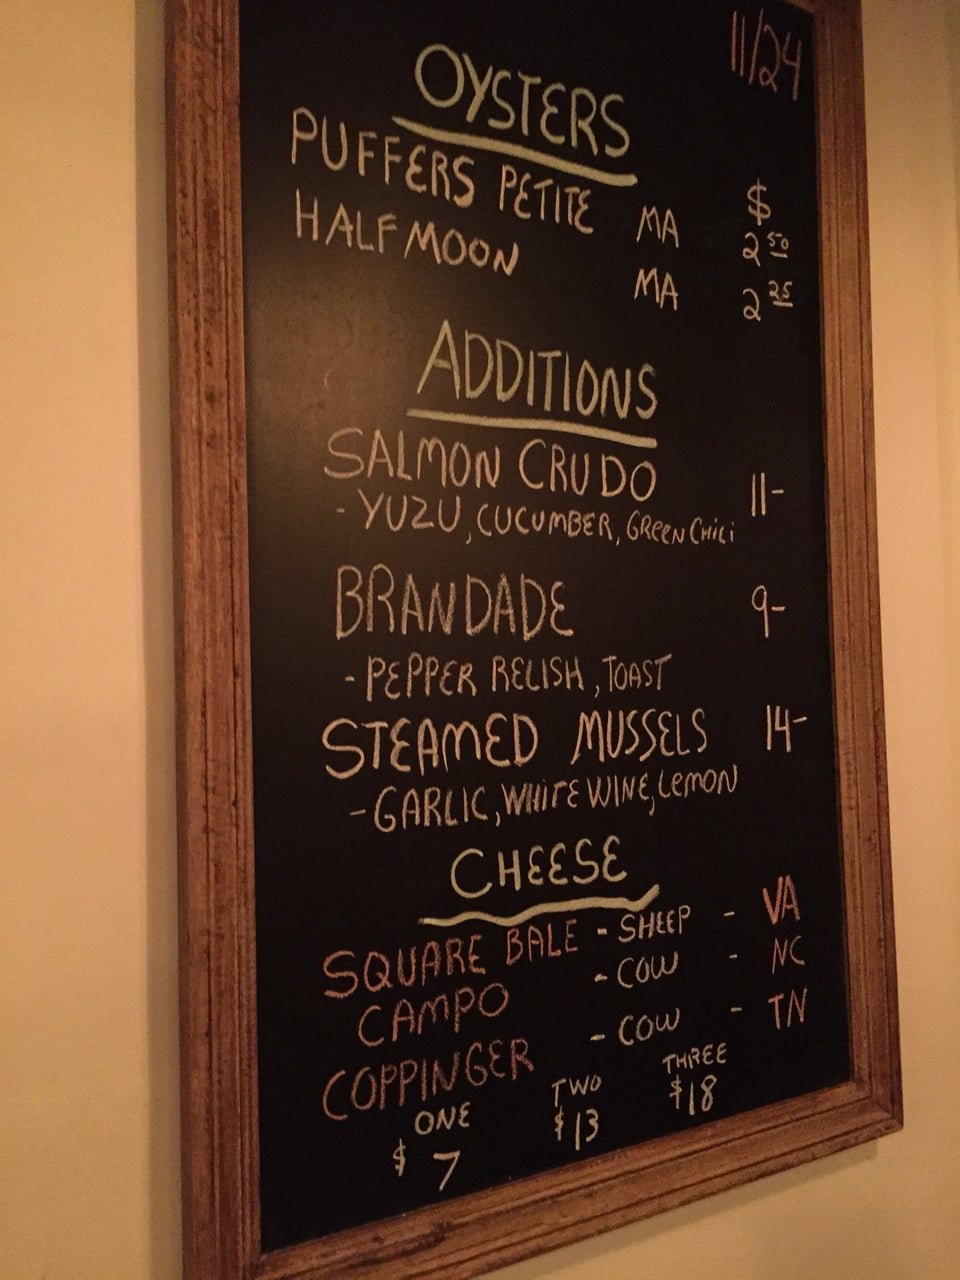 11/24
OYSTERS
$
PUFFERS PETITE MA 2 50
HALF MOON MA 2 25
ADDITIONS
SALMON CRUDO 11-
- YUZU, CUCUMBER, GREEN CHILI
BRANDADE 9-
- PEPPER RELISH, TOAST
STEAMED MUSSELS 14-
- GARLIC, WHITE WINE, LEMON
CHEESE
SQUARE BALE - SHEEP - VA
CAMPO - COW - NC
COPPINGER - COW - TN
ONE TWO THREE
$7 $13 $18